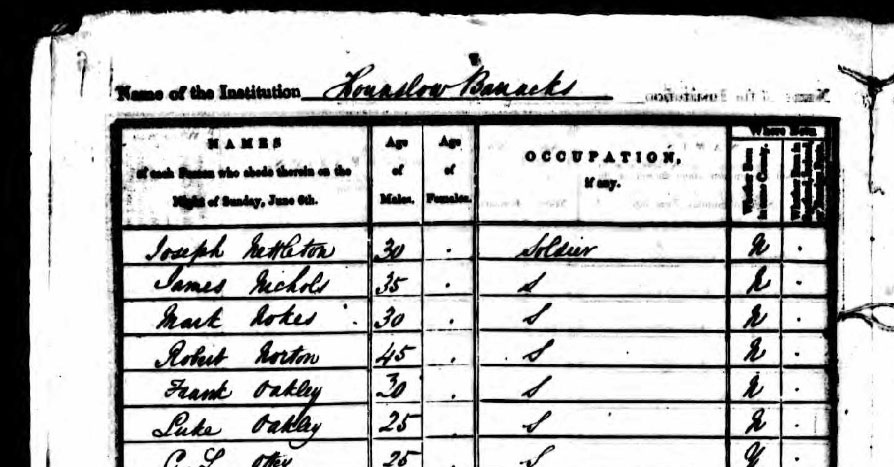 Name of the Institution Hounslow Barracks
NAMES
of each Person who abode therein on the
Night of Sunday, June 6th.
Age
of
Males.
Age
of
Females.
OCCUPATION,
if any.
Where Born
Whether Born
in same County.
Whether Born in
Joseph Nettleton 30 . Soldier N .
James Nichols 35 . S N .
Mark Nokes 30 . S N .
Robert Norton 45 . S N .
Frank Oakley 30 . S N .
Luke Oakley 25 . S N .
25 S Y